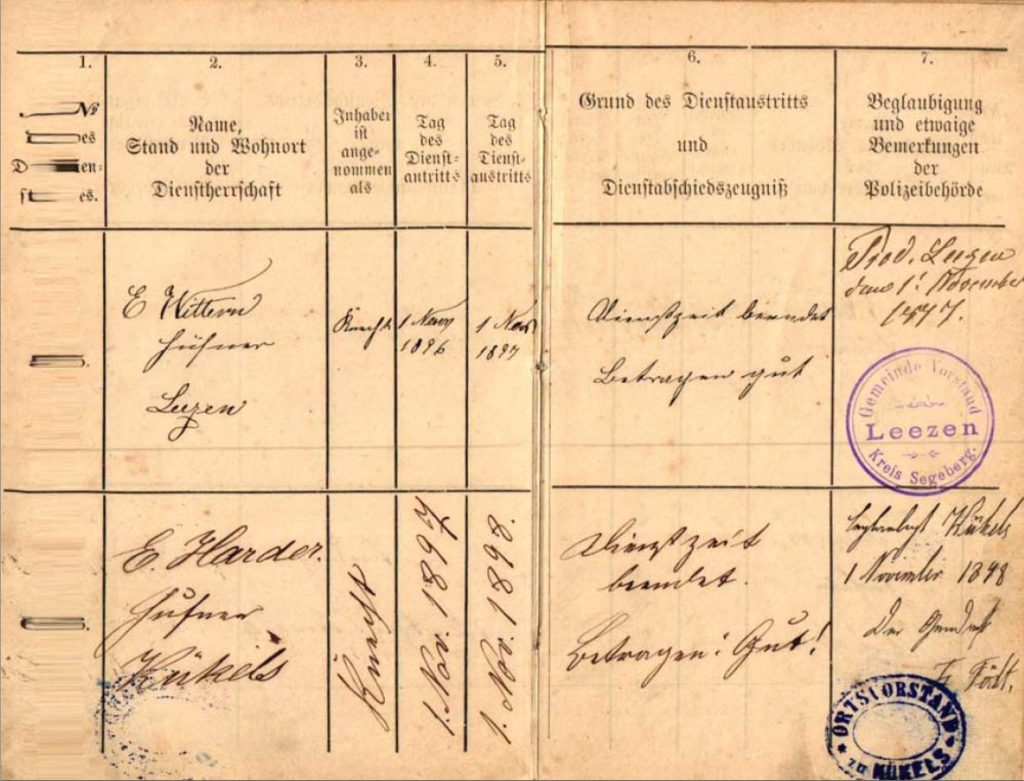 1.
№
es
D en-
st es.
2.
Name,
Stand und Wohnort
der
Dienstherrschaft
3.
Inhaber
ist
ange-
nommen
als
4.
Tag
des
Dienst-
antritts
5.
Tag
des
Dienst-
austritts
6.
Grund des Dienstaustritts
und
Dienstabschiedszeugniß
7.
Beglaubigung
und etwaige
Bemerkungen
der
Polizeibehörde
E Wittern
Hüfner
Leezen
Knecht
1 Nov
1896
1 Nov
1897
Dienstzeit beendet
Betragen gut
Leezen
den 1. November
1897.
Gemeinde Vorstand
Leezen
Kreis Segeberg.
E. Harder.
Hufner
Kükels
Knecht
1. Nov. 1897
1. Nov. 1898.
Dienstzeit
beendet.
Betragen: Gut!
Kükels
1 November 1898
Der
ORTSVORSTAND
zu KÜKELS